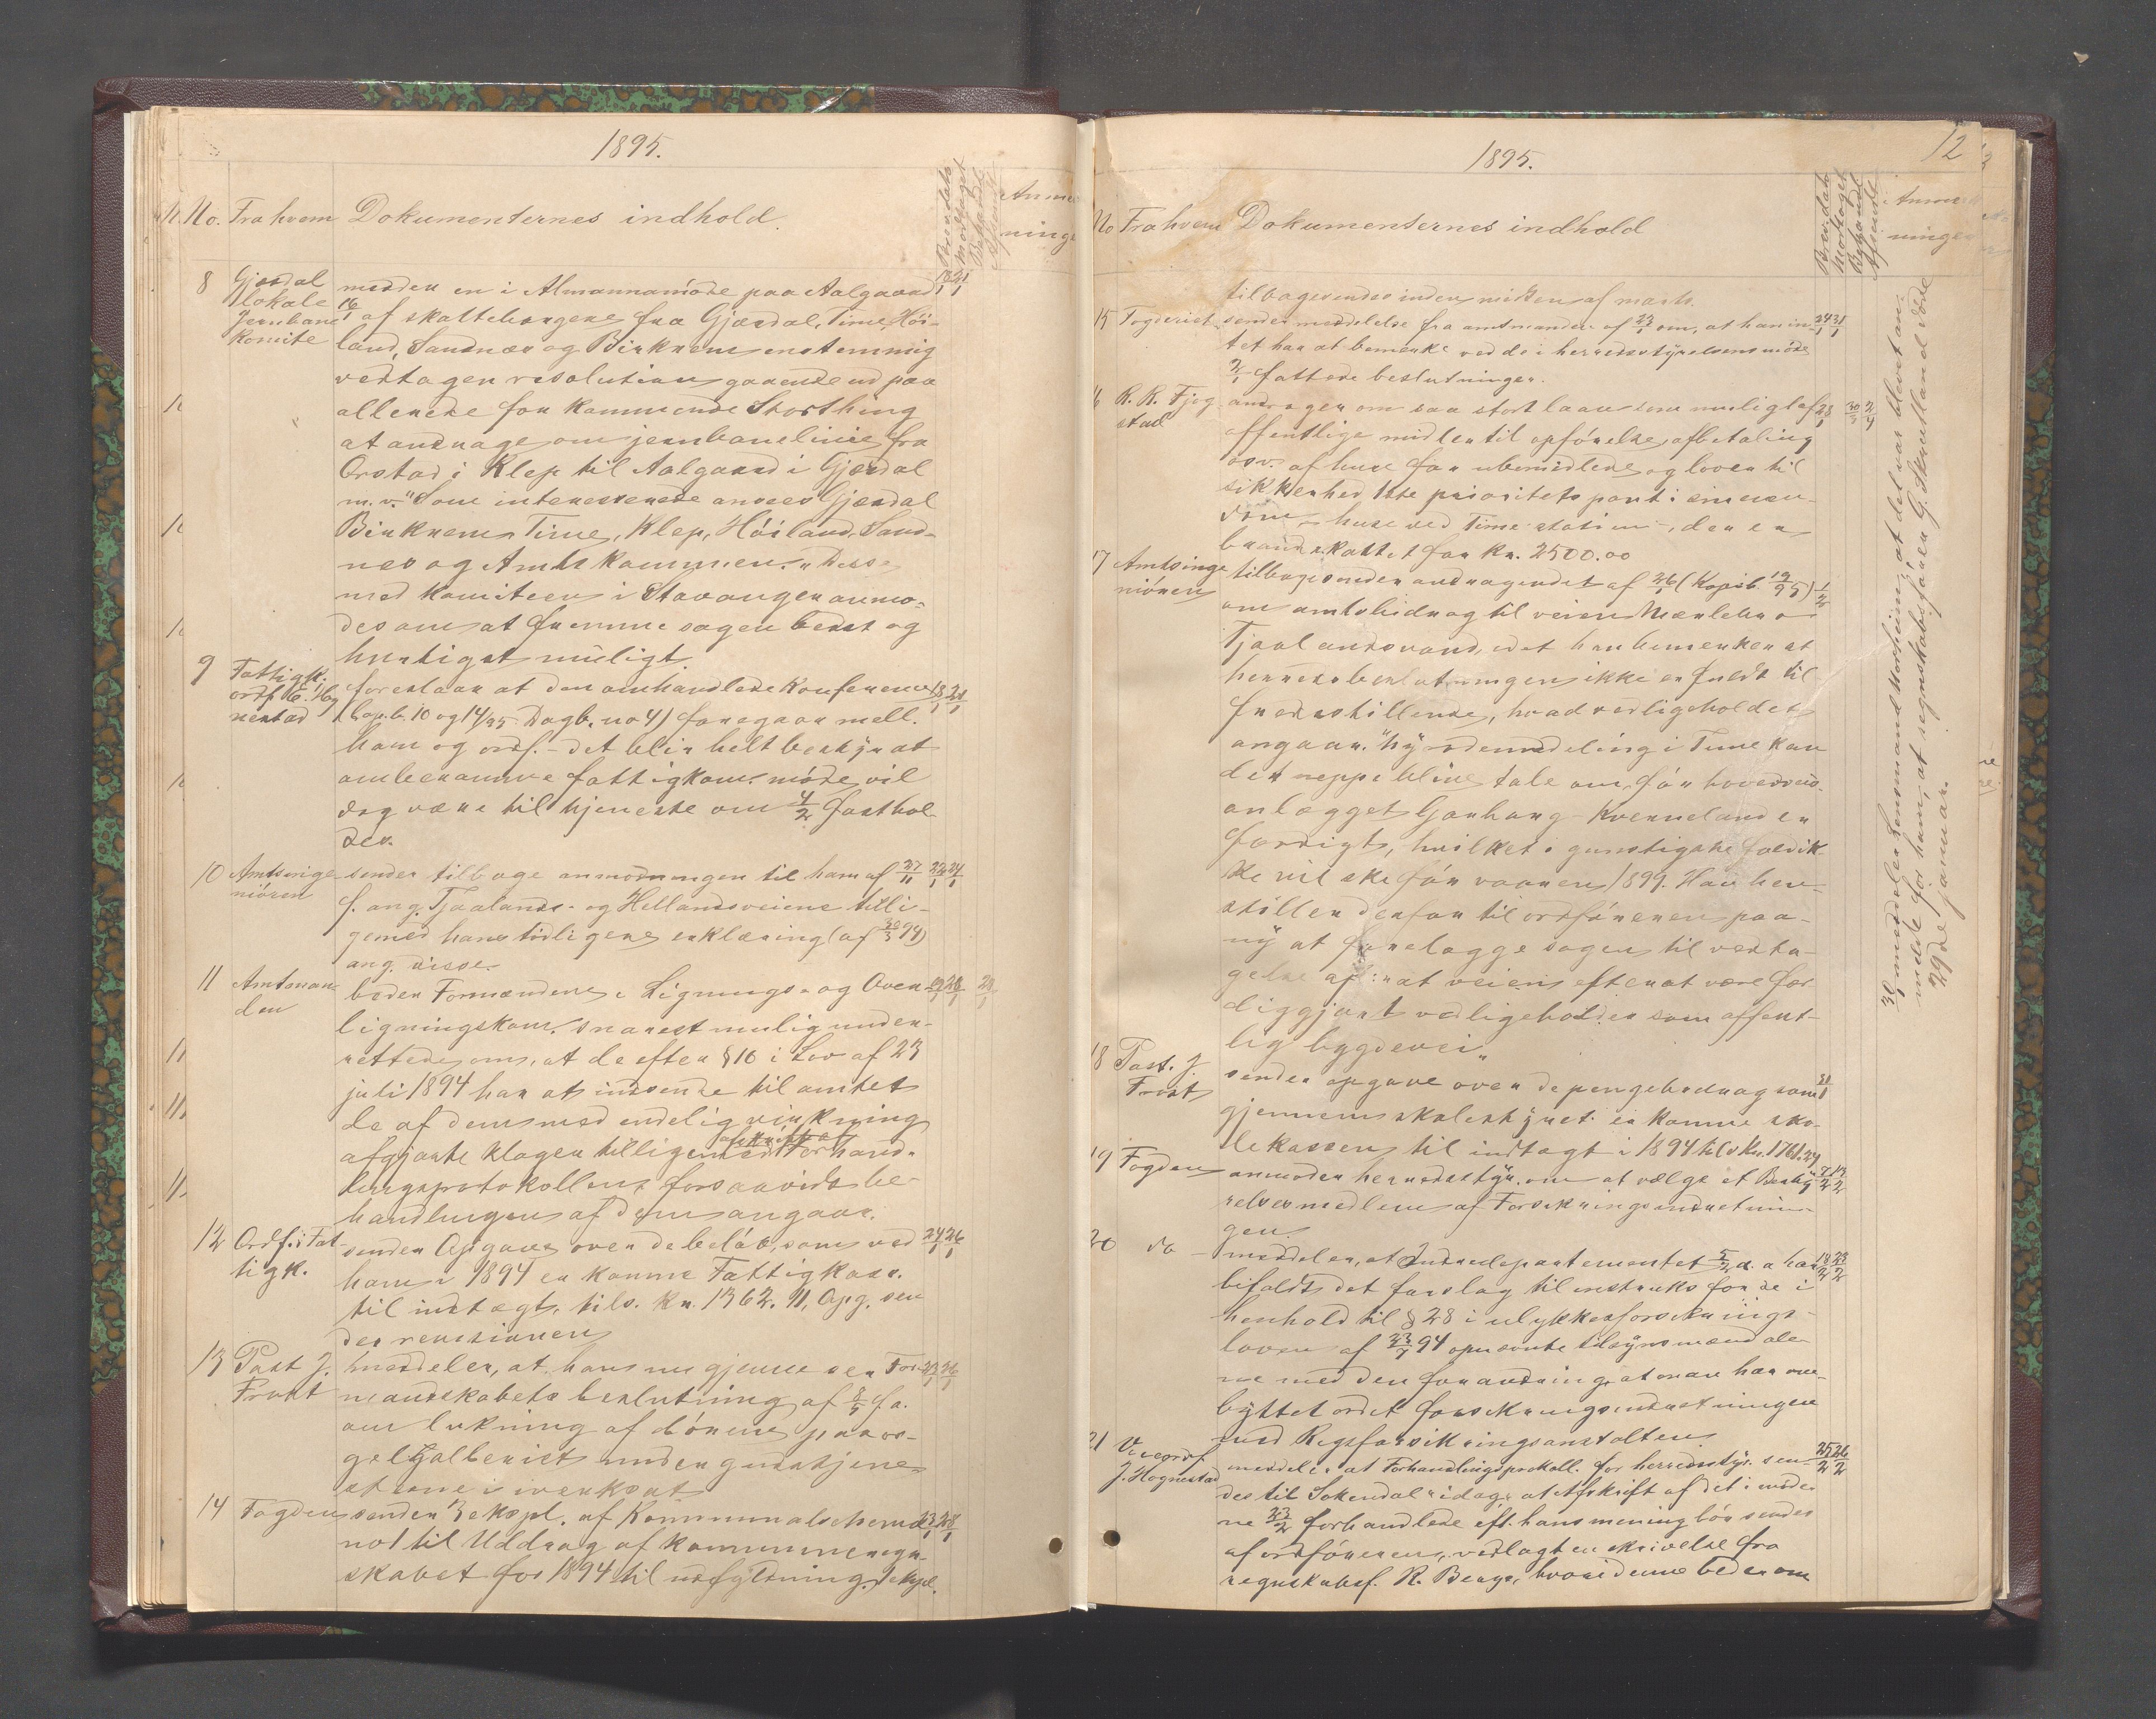 1895.
No. Fra hvem Dokumenternes indhold.
Brevdato
Modtaget
Behandl.
Afsendt
Anmærk
ninger
8 Gjæsdal lokale Jernbane Komite
melder en i Almannamøde paa Aalgaard 18/1 21/1
16/1 af skatteborgere fra Gjæsdal, Time, Høi-
land, Sandnæs og Birkrem enstemmig
vedtagen resolution gaaende ud paa
allerede for kommende Storthing
at andrage om jernbanelinie fra
Orstad i Klep til Aalgaard i Gjæsdal
m. v. Som interesserede ansees Gjæsdal
Birkrem, Time, Klep, Høiland, Sand-
nes og Amtskommunen. Disse
med komiteen i Stavanger anmo-
des om at fremme sagen bedst og
hurtigst muligt.
9 Fattigk. ordf. E. Hognestad
foreslaar at den omhandlede Konference 18/1 21/1
(kop.b. 10 og 14/95 Dagb. no 4) foregaar mell.
ham og ordf. - det blir helt beskyr at
ombenævnte fattigkom. møde vil
dog være til tjeneste om 4/2 fasthol-
des.
10 Amtsingeniøren
sender tilbage anmodningen til ham af 27/11 22/1 24/1
f. ang. Tjaalands- og Hellandsveiene tilli-
gemed hans tidligere erklæring (af 30/3 94)
ang. disse.
11 Amtmanden
beder Formændene i Lignings- og Over 22/1 28/1 28/1
ligningskom. snarest mulig under-
rettede om, at de efter § 10 i Lov af 23
juli 1894 har at indsende til amtet
de af dem med endelig virkning
afgjorte klager tilligemed afskrift af Forhand-
lingsprotokollen, forsaavidt be-
handlingen af dem angaar.
12 Ordf. i Fattigk.
sender Opgave over de beløb, som ved 24/1 26/1
ham i 1894 er komne Fattigkass.
til indtægt, tils. Kr. 1362.11, Opg. sen
des revisionen
13 Past. J. Frost
meddeler, at han nu gjennemser For- 23/1 26/1
mandskabets beslutning af 8/9 f. a.
om lukning af dørene paa or-
gelgalleriet under gudstjene-
sterne iverksat
14 Fogden
sender 3 ekspl. af Kommunalschema 23/1 28/1
no 1 til Uddrag af kommuneregn-
skabet for 1894 til udfyldning. 1 ekspl.
12
1895.
No Fra hvem Dokumenternes indhold
Brevdato
Modtaget
Behandl.
Afsendt
Anmærk
ninger
tilbagesendes inden midten af marts.
15 Fogderiet
sender meddelelse fra amtmanden af 23/1 om, at han in- 24/1 31/1
tet har at bemerke ved de i herredsstyrelsens møde
2/1 fattede beslutninger.
16 R. R. Fjogstad
andrager om saa stort laan som muligt af 28/1 30/3 2/4
offentlige midler til opførelse, afbetaling
osv. af huse for ubemidlede og lover til
sikkerhed 1ste prioritets pant i sin eien-
dom - huse ved Time station -, den er
brandskattet for Kr. 2500.00
17 Amtsingeniøren
tilbagesender andragendet af 26/1 (Kopib. 19/95) 1/2
om amtsbidrag til veien Mærlebro
Tjaalandsvand, idet han bemerker at
herredsbeslutningen ikke er fuldt til
fredsstillende, hvad vedligeholdet
angaar. "Ny rodemdeling i Time kan
der neppe blive tale om, før hovedvei-
anlægget Garborg - Kverneland er
færdigt, hvilket i gunstigste fald ik-
ke vil ske før vaaren 1899. Han hen-
stiller derfor til ordføreren paa-
ny at forelægge sagen til vedta-
gelse af: at veien efter at være fær
diggjort vedligeholdes som offent-
lig bygdevei"
18 Past. J. Frost
sender opgave over de pengebidrag som 31/1
gjennem skolestyret er komne sko-
lekassen til indtægt i 1894 tils Kr. 1761.27
19 Fogden
anmoder herredsstyr. om at vælge et Besty- 9/2 12/2
relsesmedlem af Forsikringsindretnin-
gen
20 do
meddeler, at Indredepartementet 5/2 d. a. har 18/2 23/2
bifaldt det forslag til instruks for de i
henhold til § 28 i ulykkesforsikrings-
loven af 23/7 94 opnævnte tilsynsmænd ale-
ne med den forandring, at man har om-
byttet ordet forsikringsindretningen
med Rigsforsikringsanstalten.
21 Viceordf. J. Hognestad
meddeler at Forhandlingsprokoll. for herredsstyr. sen- 25/2 26/2
des til Sokendal "idag" at Afskrift af det i møde-
ne 23/2 forhandlede eft. hans mening bør sendes
af ordføreren, vedlagt en skrivelse fra
regnskabsf. R. Berge, hvori denne beder om
30/1 meddeler Lensmand Horsheim, at det var blevet an-
meldt for ham, at regnskabsfører G. Skratland døde
29de januar.